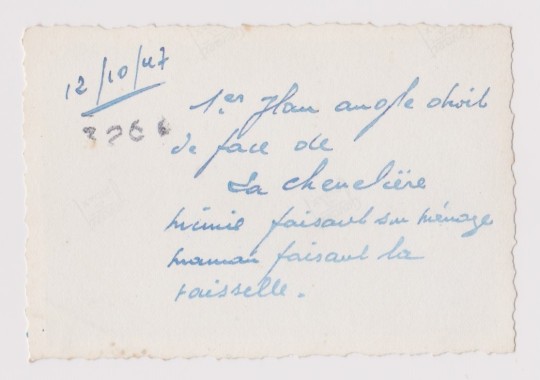 12/10/47
3266
1er Plan angle droit
de face de
La Chenelière
mimie faisant son ménage
maman faisant la
vaisselle.